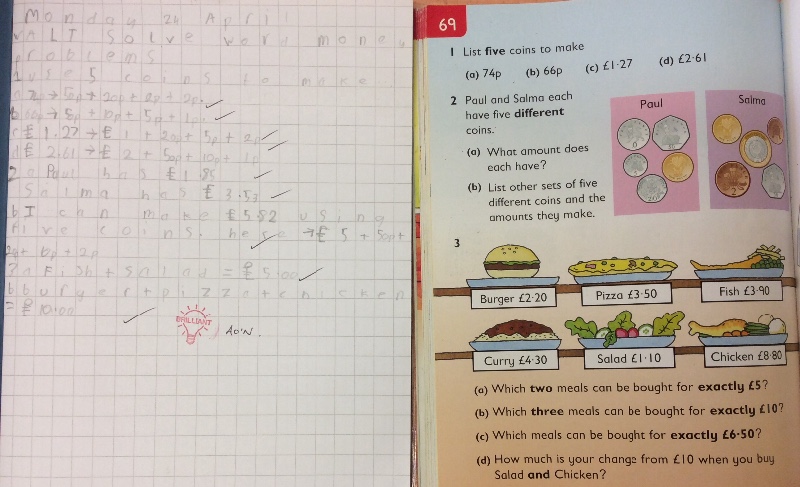 Monday 24 April
WALT Solve word money
problems
1 use 5 coins to make
→ 50p + 20p + 2p + 2p
→ 5p + 10p + 5p + 1p
c £1.27 → £1 + 20p + 5p + 2p
d £2.61 → £2 + 50p + 10p + 1p
2a Paul has £1.85
Salma has £3.53
b I can make £5.82 using
five coins. here → £5 + 50p +
20p + 10p + 2p
3a Fish + salad = £5.00
b burger + pizza + chicken
= £10.00
BRILLIANT
69
1 List five coins to make
(a) 74p (b) 66p (c) £1·27 (d) £2·61
2 Paul and Salma each
have five different
coins.
(a) What amount does
each have?
(b) List other sets of five
different coins and the
amounts they make.
Paul
Salma
3
Burger £2·20 Pizza £3·50 Fish £3·90
Curry £4·30 Salad £1·10 Chicken £8·80
(a) Which two meals can be bought for exactly £5?
(b) Which three meals can be bought for exactly £10?
(c) Which meals can be bought for exactly £6·50?
(d) How much is your change from £10 when you buy
Salad and Chicken?